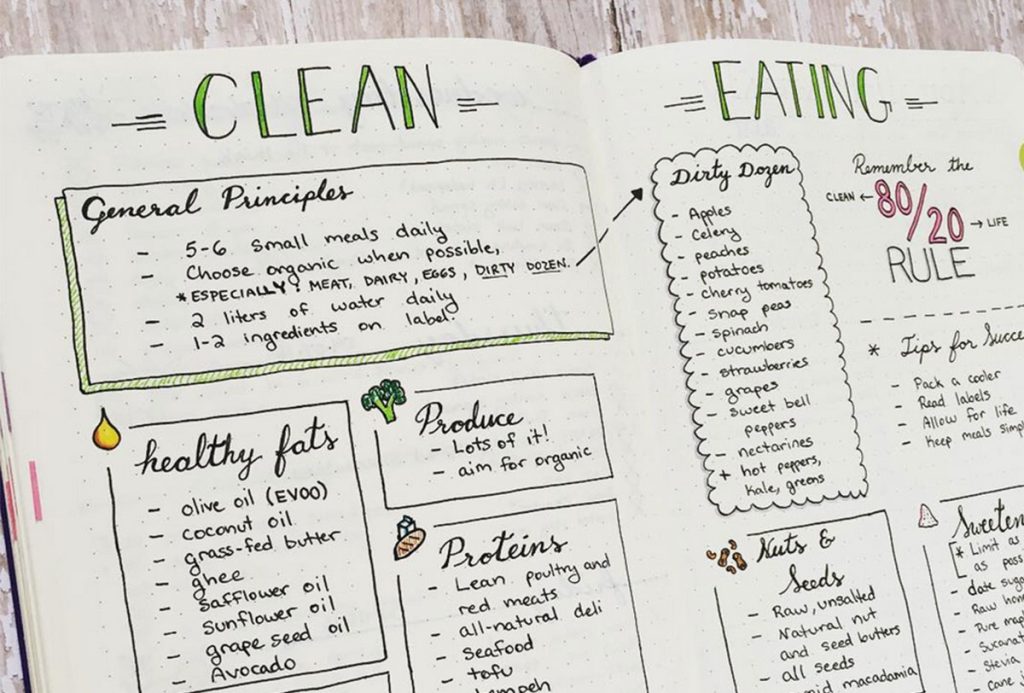 CLEAN
General Principles
- 5-6 small meals daily
- Choose organic when possible,
*ESPECIALLY: MEAT, DAIRY, EGGS, DIRTY DOZEN.
- 2 liters of water daily
- 1-2 ingredients on label!
healthy fats
- olive oil (EVOO)
- coconut oil
- grass-fed butter
- ghee
- safflower oil
- sunflower oil
- grape seed oil
- Avocado
Produce
- Lots of it!
- aim for organic
Proteins
- Lean poultry and
red meats
- all-natural deli
- seafood
- tofu
- tempeh
EATING
Dirty Dozen
- Apples
- Celery
- peaches
- potatoes
- cherry tomatoes
- snap peas
- spinach
- cucumbers
- strawberries
- grapes
- sweet bell
peppers
- nectarines
+ hot peppers,
kale, greens
Remember the
CLEAN ← 80/20 → LIFE
RULE
* Tips for
- Pack a cooler
- Read labels
- Allow for life
- Keep meals
Nuts &
Seeds
- Raw, unsalted
- Natural nut
and seed butters
- all seeds
macadamia
* Limit as
as
- date
- Raw
- Pure
- Stevia
- Cane